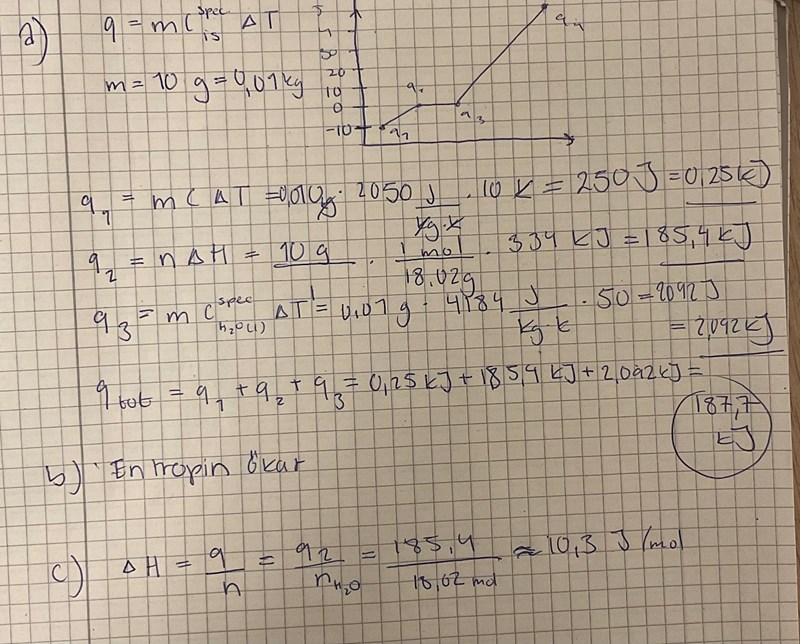 a) q = m C is^spec ΔT
m = 10 g = 0,01 kg
50
20
10
0
-10
q1
q3
q4
q1 = m C ΔT = 0,010 kg · 2050 J/(kg·K) · 10 K = 250 J = 0,25 kJ
q2 = n ΔH = 10 g · 1 mol/18.02g · 334 kJ = 185,4 kJ
q3 = m C H2O(l)^spec ΔT = 0,01 g · 4184 J/(kg·K) · 50 = 2092 J
= 2,092 kJ
q tot = q1 + q2 + q3 = 0,25 kJ + 185,4 kJ + 2,092 kJ =
187,7
kJ
b) Entropin ökar
c) ΔH = q/n = q2/n H2O = 185,4/18,02 mol ≈ 10,3 J/mol